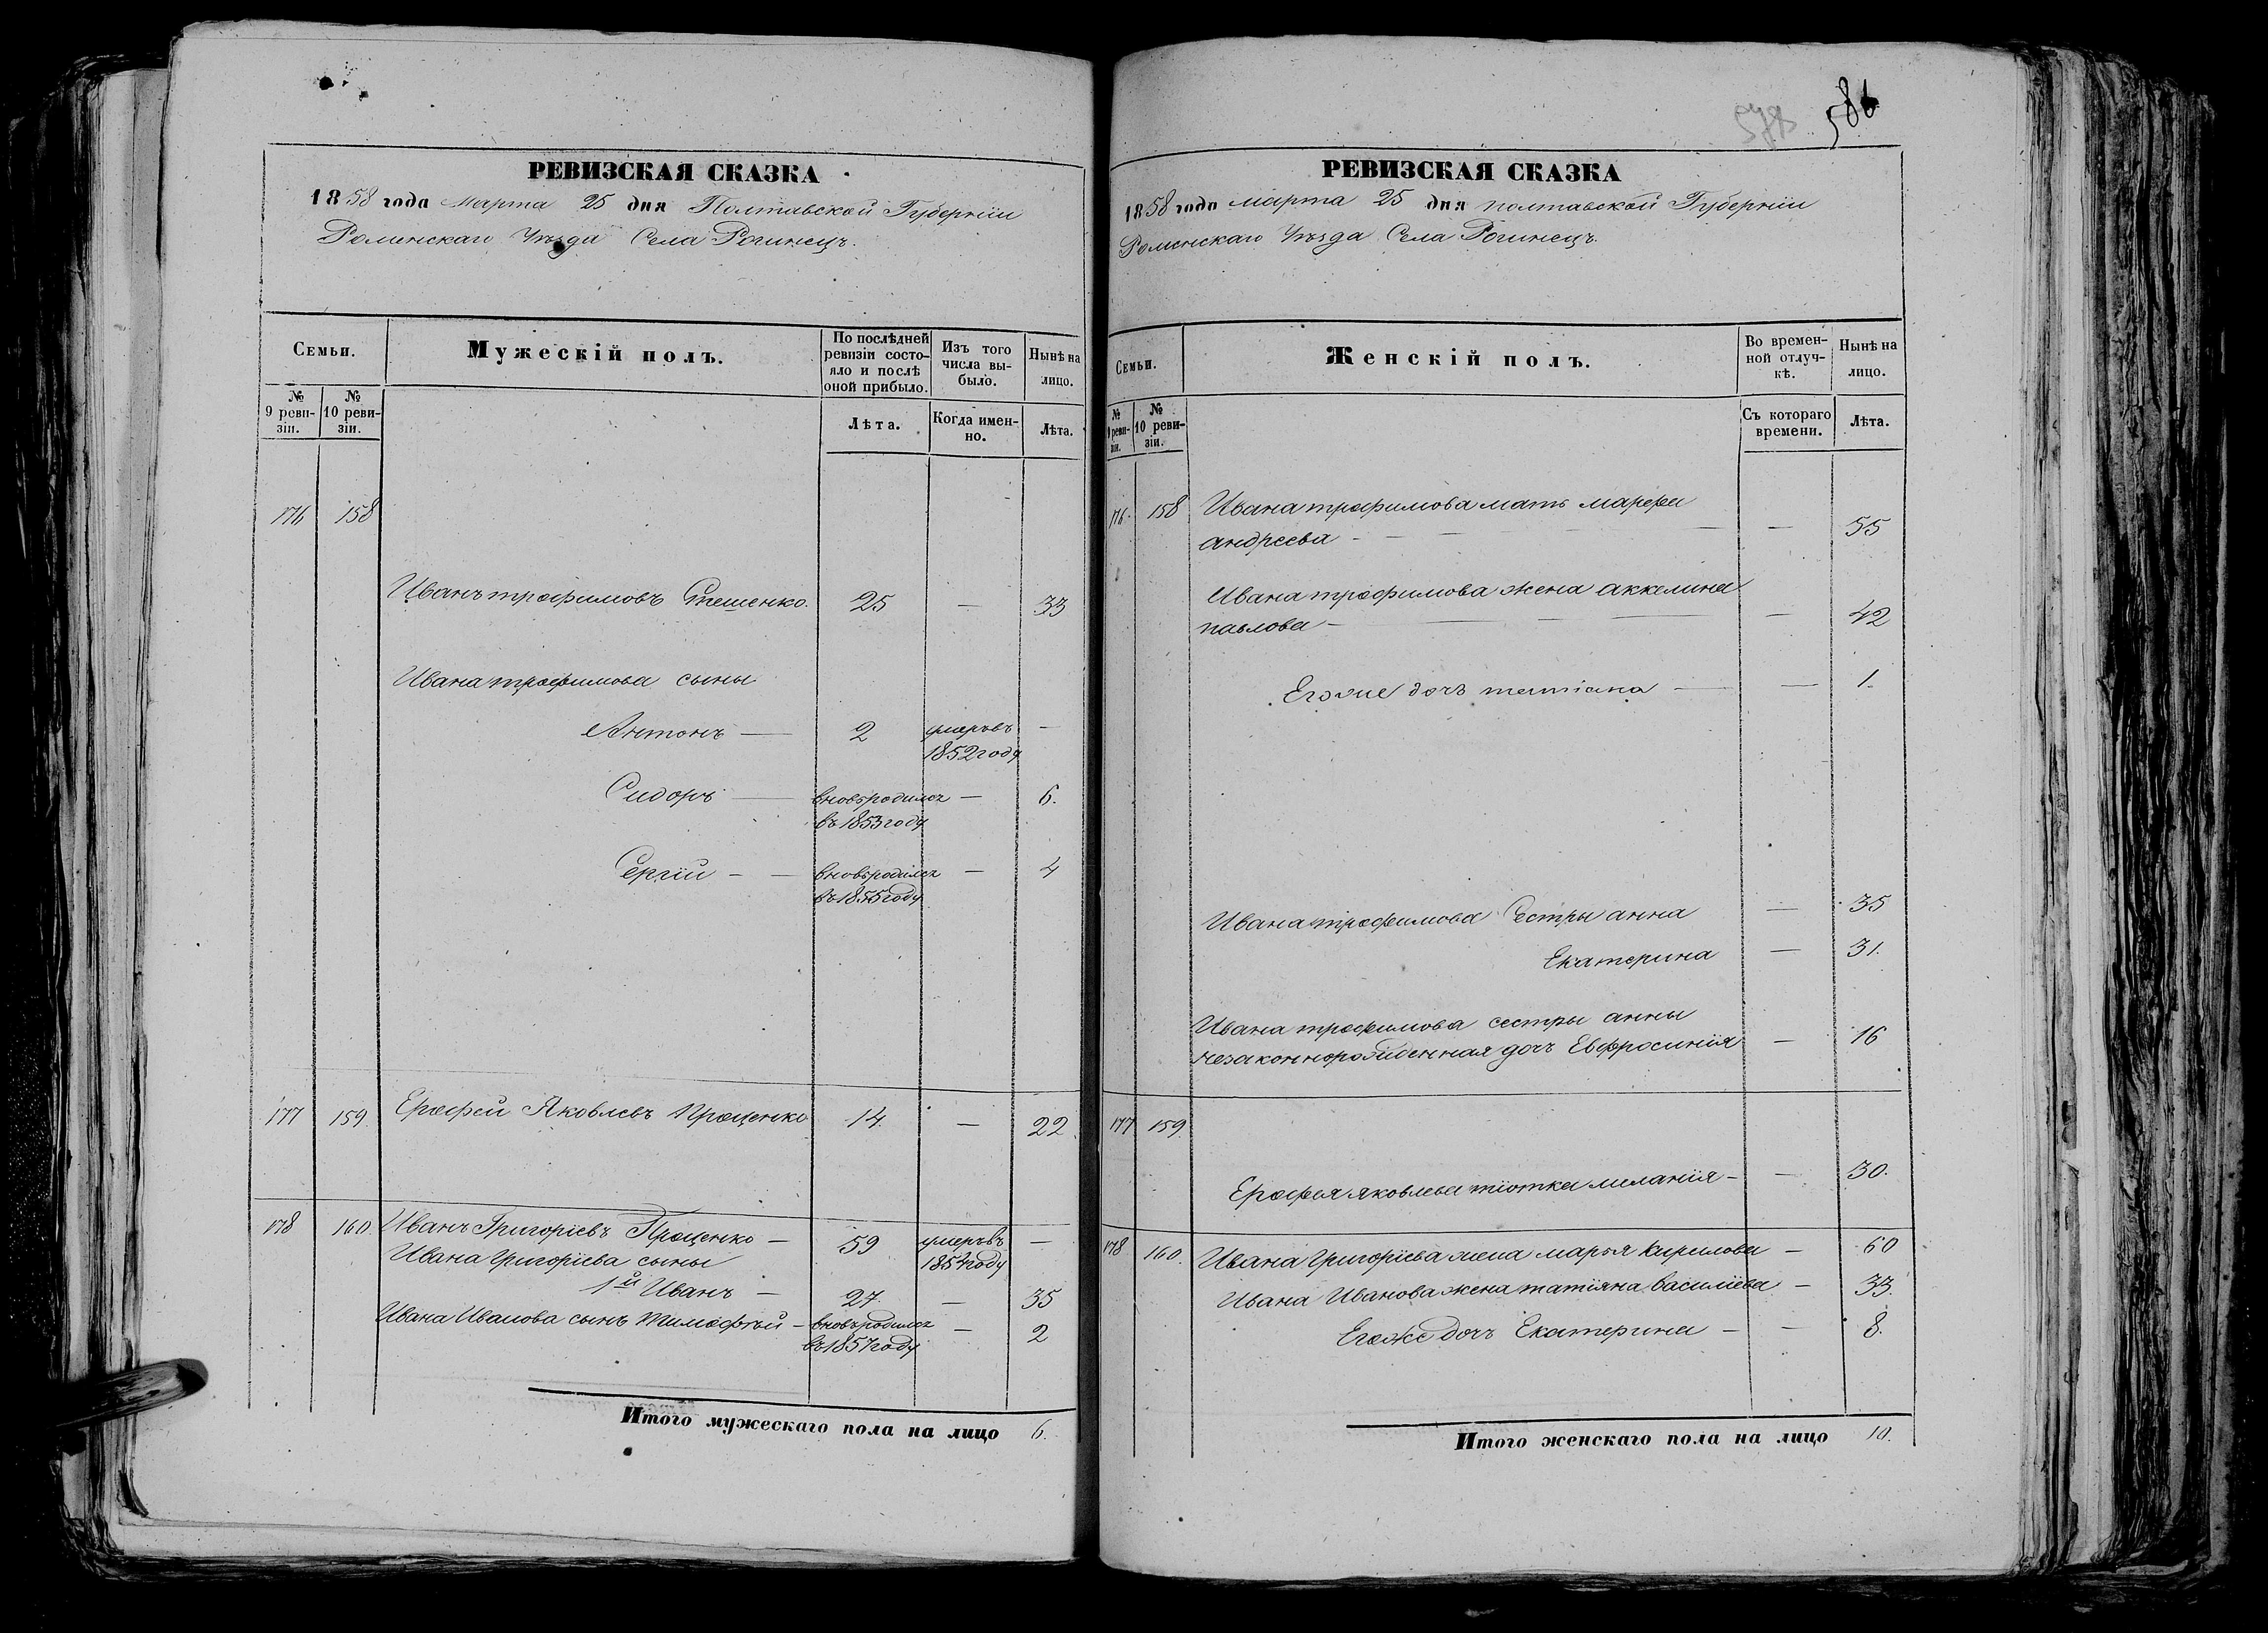 РЕВИЗСКАЯ СКАЗКА
1858 года Марта 25 дня Полтавской Губерніи
Роменскаго Уѣзда Села Рогинецъ.
Семьи.
Мужескій полъ.
По послѣдней ревизіи состояло и послѣ оной прибыло.
Изъ того числа выбыло.
Нынѣ на лицо.
№ 9 ревизіи.
№ 10 ревизіи.
Лѣта.
Когда именно.
Лѣта.
176 158
Иванъ трофимовъ 25 — 33
Ивана трофимова сыны
Антонъ — 2 умеръ въ —
1852 году
Сидоръ — вновь родился — 6.
въ 1853 году
Сергій — — вновь родился — 4
въ 1855 году
177 159. Ерофей Яковлевъ Проценко 14. — 22.
178 160. Иванъ Григоріевъ Проценко — 59 умеръ въ —
Ивана Григоріева сыны 1854 году
1й Иванъ — 27 — 35
Ивана Иванова сынъ Тимофѣй — вновь родился — 2
въ 1857 году
Итого мужескаго пола на лицо 6.
586
РЕВИЗСКАЯ СКАЗКА
1858 года марта 25 дня полтавской Губерніи
Роменскаго Уѣзда Села Рогинецъ.
Семьи.
Женскій полъ.
Во временной отлучкѣ.
Нынѣ на лицо.
№ 9 ревизіи.
№ 10 ревизіи.
Съ котораго времени.
Лѣта.
176. 158 Ивана трофимова мать марфа
андреева — — — 55
Ивана трофимова жена аккелина
павлова — — — 42
Егоже дочь татіана — — 1.
Ивана трофимова Сестры анна — 35
Екатерина — 31.
Ивана трофимова сестры анны
незаконнорожденная дочь Евфросинія — 16
177 159.
Ерофея яковлева тіотка меланія — — 30.
178 160. Ивана Григоріева жена марья кирилова — 60
Ивана Иванова жена татіяна василіева — 33.
Егоже дочь Екатерина — — 8.
Итого женскаго пола на лицо 10.